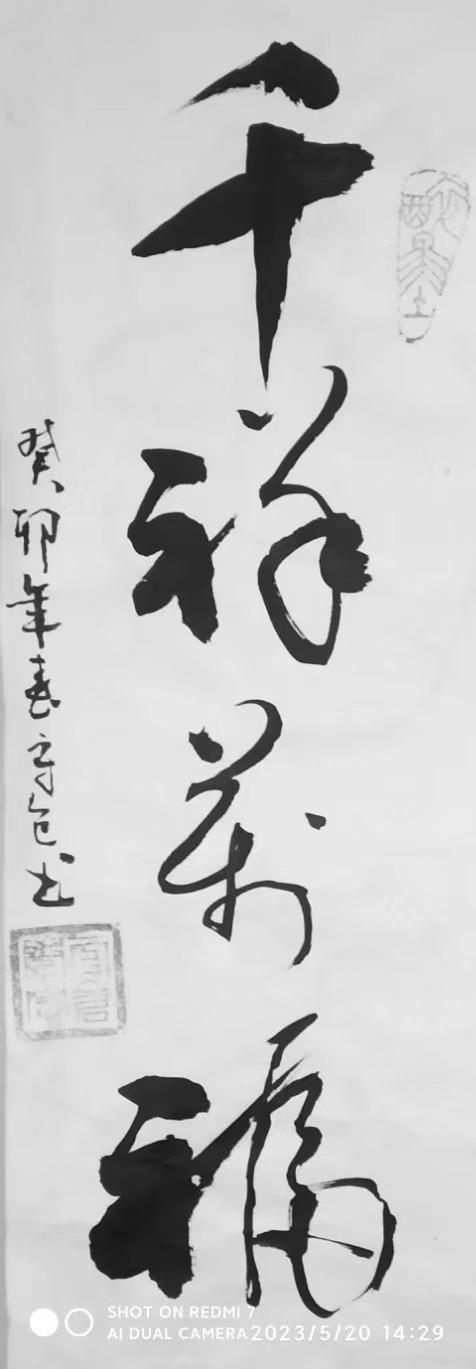 千祥萬福
癸卯年春守邑书
SHOT ON REDMI 7
AI DUAL CAMERA 2023/5/20 14:29